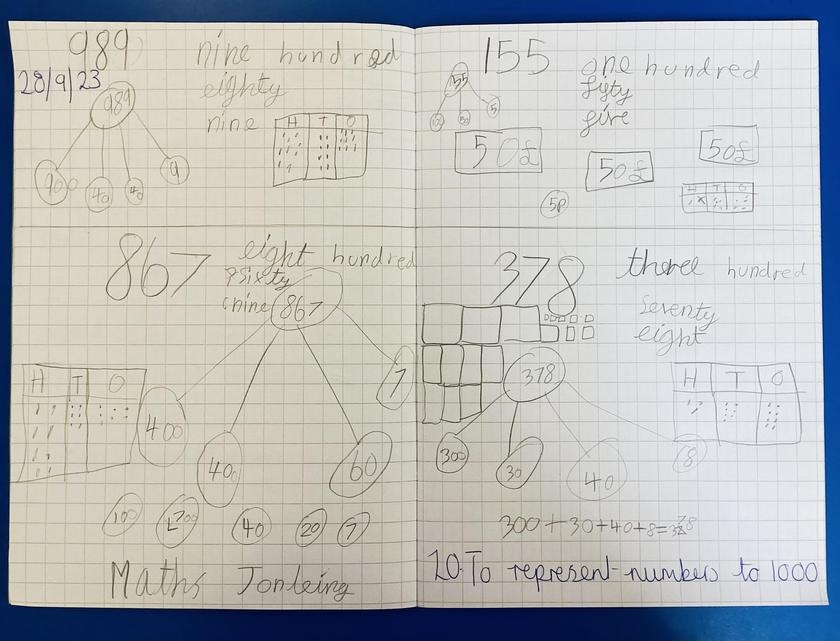 989
nine hundred
28/9/23
eighty
nine
989
900
40
40
9
H T O
155
one hundred
fifty
five
155
50
5
50£
50£
50£
5p
H T O
867
eight hundred
psixty
nine
867
400
400
60
7
H T O
100
700
40
20
7
Maths Jonleing
378
threel hundred
seventy
eight
378
300
30
40
8
H T O
300+30+40+8=378
LO: To represent numbers to 1000